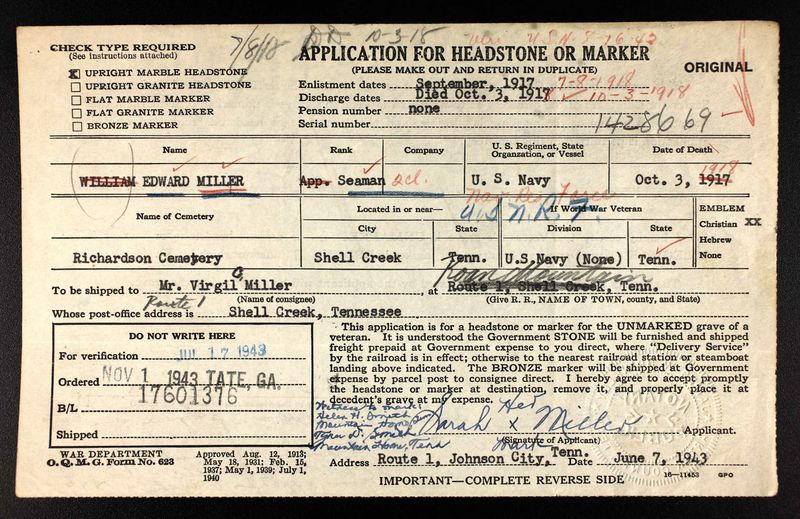 7/8/18 DD 10-3-18 U.S.N. 5-76-42
CHECK TYPE REQUIRED
(See instructions attached)
X UPRIGHT MARBLE HEADSTONE
UPRIGHT GRANITE HEADSTONE
FLAT MARBLE MARKER
FLAT GRANITE MARKER
BRONZE MARKER
APPLICATION FOR HEADSTONE OR MARKER
(PLEASE MAKE OUT AND RETURN IN DUPLICATE)
ORIGINAL
Enlistment dates September, 1917 7-8-1918
Discharge dates Died Oct. 3, 1917 10-3-1918
Pension number none
Serial number 1428669
Name Rank Company U. S. Regiment, State Organization, or Vessel Date of Death
1918
WILLIAM EDWARD MILLER App. Seaman 2cl. U. S. Navy Oct. 3, 1917
U.S.N.R.F.
Name of Cemetery Located in or near— If World War Veteran EMBLEM
City State Division State
Christian XX
Hebrew
None
Richardson Cemetery Shell Creek Tenn. U.S. Navy (None) Tenn.
Roan Mountain
To be shipped to Mr. Virgil C Miller at Route 1, Shell Creek, Tenn.
(Name of consignee) (Give R. R., NAME OF TOWN, county, and State)
Route 1
Whose post-office address is Shell Creek, Tennessee
DO NOT WRITE HERE
For verification JUL 17 1943
Ordered NOV 1 1943 TATE, GA.
17601376
B/L
Shipped
This application is for a headstone or marker for the UNMARKED grave of a
veteran. It is understood the Government STONE will be furnished and shipped
freight prepaid at Government expense to you direct, where "Delivery Service"
by the railroad is in effect; otherwise to the nearest railroad station or steamboat
landing above indicated. The BRONZE marker will be shipped at Government
expense by parcel post to consignee direct. I hereby agree to accept promptly
the headstone or marker at destination, remove it, and properly place it at
decedent's grave at my expense.
Witness to mark:
Helen H. Smith
Mountain Home
Smith
Mountain Home, Tenn
Her
Sarah x Miller Applicant.
Mark
(Signature of Applicant)
Address Route 1, Johnson City, Tenn. Date June 7, 1943
WAR DEPARTMENT
O. Q. M. G. Form No. 623
Approved Aug. 12, 1913;
May 18, 1931; Feb. 15,
1937; May 1, 1939; July 1,
1940
IMPORTANT—COMPLETE REVERSE SIDE 16-11453 GPO